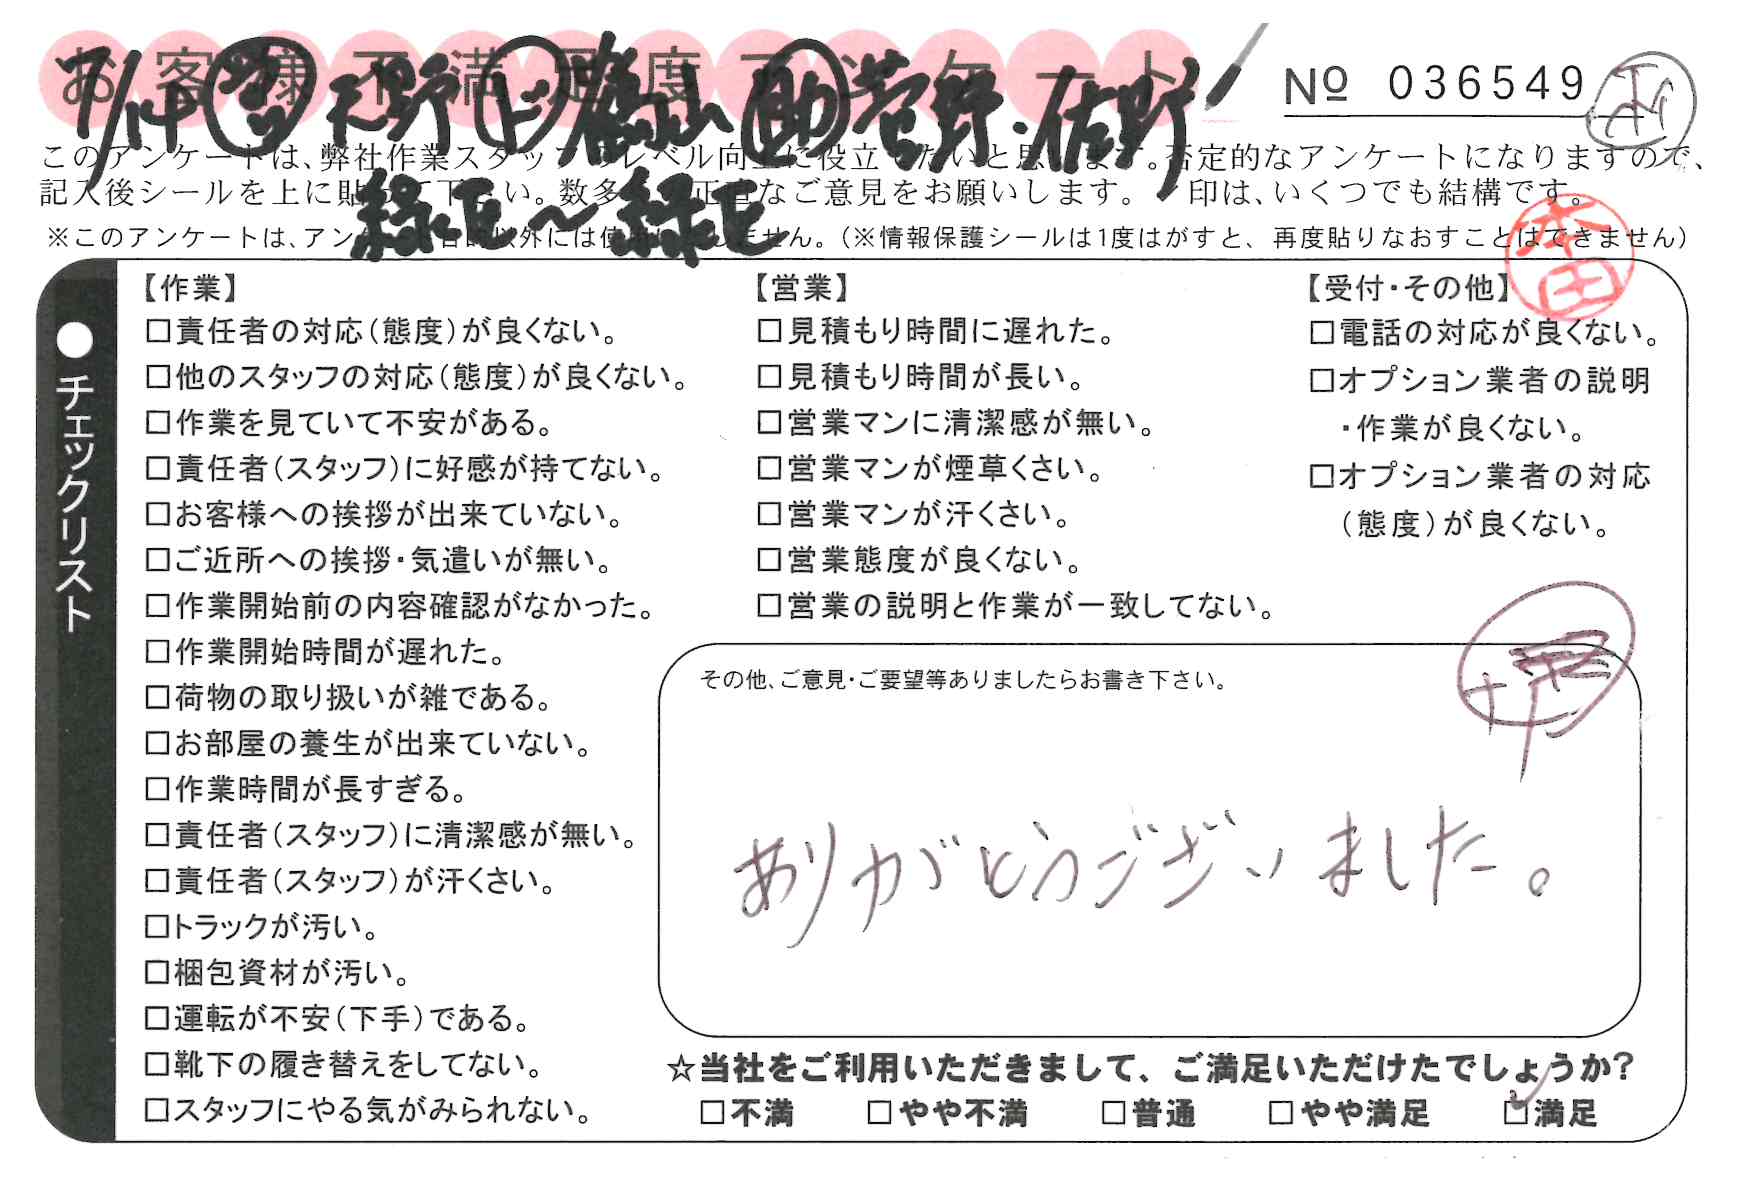 お客様不満足度アンケート
№ 036549
7/14 天野 ド 鶴山 助 菅野・佐野
このアンケートは、弊社作業スタッフのレベル向上に役立てたいと思います。否定的なアンケートになりますので、
記入後シールを上に貼って下さい。数多 正直なご意見をお願いします。✓印は、いくつでも結構です。
緑区～緑区
※このアンケートは、アンケート目的以外には使用 しません。（※情報保護シールは1度はがすと、再度貼りなおすことはできません）
本田
●チェックリスト
【作業】
□責任者の対応（態度）が良くない。
□他のスタッフの対応（態度）が良くない。
□作業を見ていて不安がある。
□責任者（スタッフ）に好感が持てない。
□お客様への挨拶が出来ていない。
□ご近所への挨拶・気遣いが無い。
□作業開始前の内容確認がなかった。
□作業開始時間が遅れた。
□荷物の取り扱いが雑である。
□お部屋の養生が出来ていない。
□作業時間が長すぎる。
□責任者（スタッフ）に清潔感が無い。
□責任者（スタッフ）が汗くさい。
□トラックが汚い。
□梱包資材が汚い。
□運転が不安（下手）である。
□靴下の履き替えをしてない。
□スタッフにやる気がみられない。
【営業】
□見積もり時間に遅れた。
□見積もり時間が長い。
□営業マンに清潔感が無い。
□営業マンが煙草くさい。
□営業マンが汗くさい。
□営業態度が良くない。
□営業の説明と作業が一致してない。
【受付・その他】
□電話の対応が良くない。
□オプション業者の説明
・作業が良くない。
□オプション業者の対応
（態度）が良くない。
その他、ご意見・ご要望等ありましたらお書き下さい。
ありがとうございました。
☆当社をご利用いただきまして、ご満足いただけたでしょうか？
□不満 □やや不満 □普通 □やや満足 ☑満足